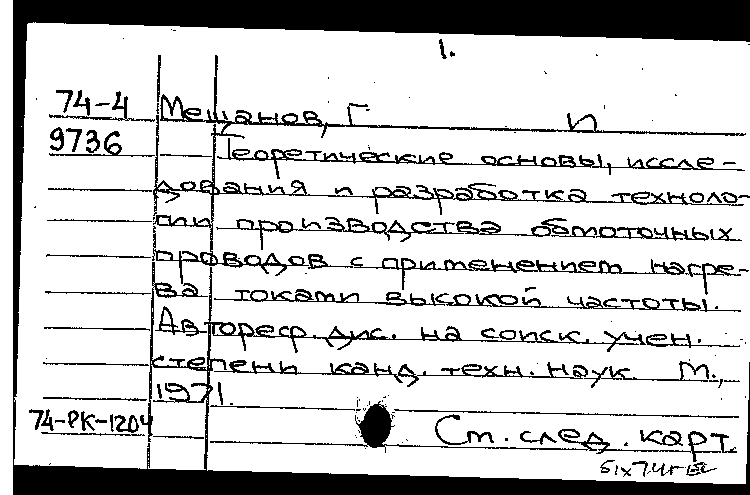 1.
74-4 Мещанов, Г И
9736 Теоретические основы, иссле-
дования и разработка техноло-
гии производства обмоточных
проводов с применением нагре-
ва токами высокой частоты.
Автореф. дис. на соиск. учен.
степени канд. техн. наук. М.,
1971.
74-РК-1204
См. след. карт.